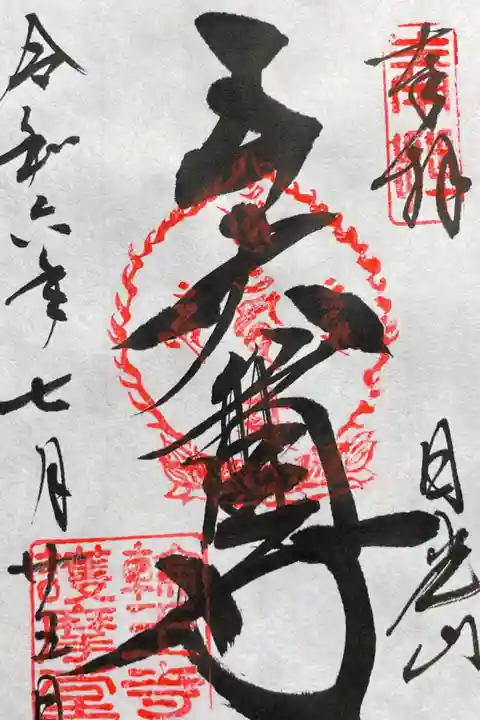 奉拝
日光山
五大尊
令和六年七月廿五日
輪王寺
護摩堂